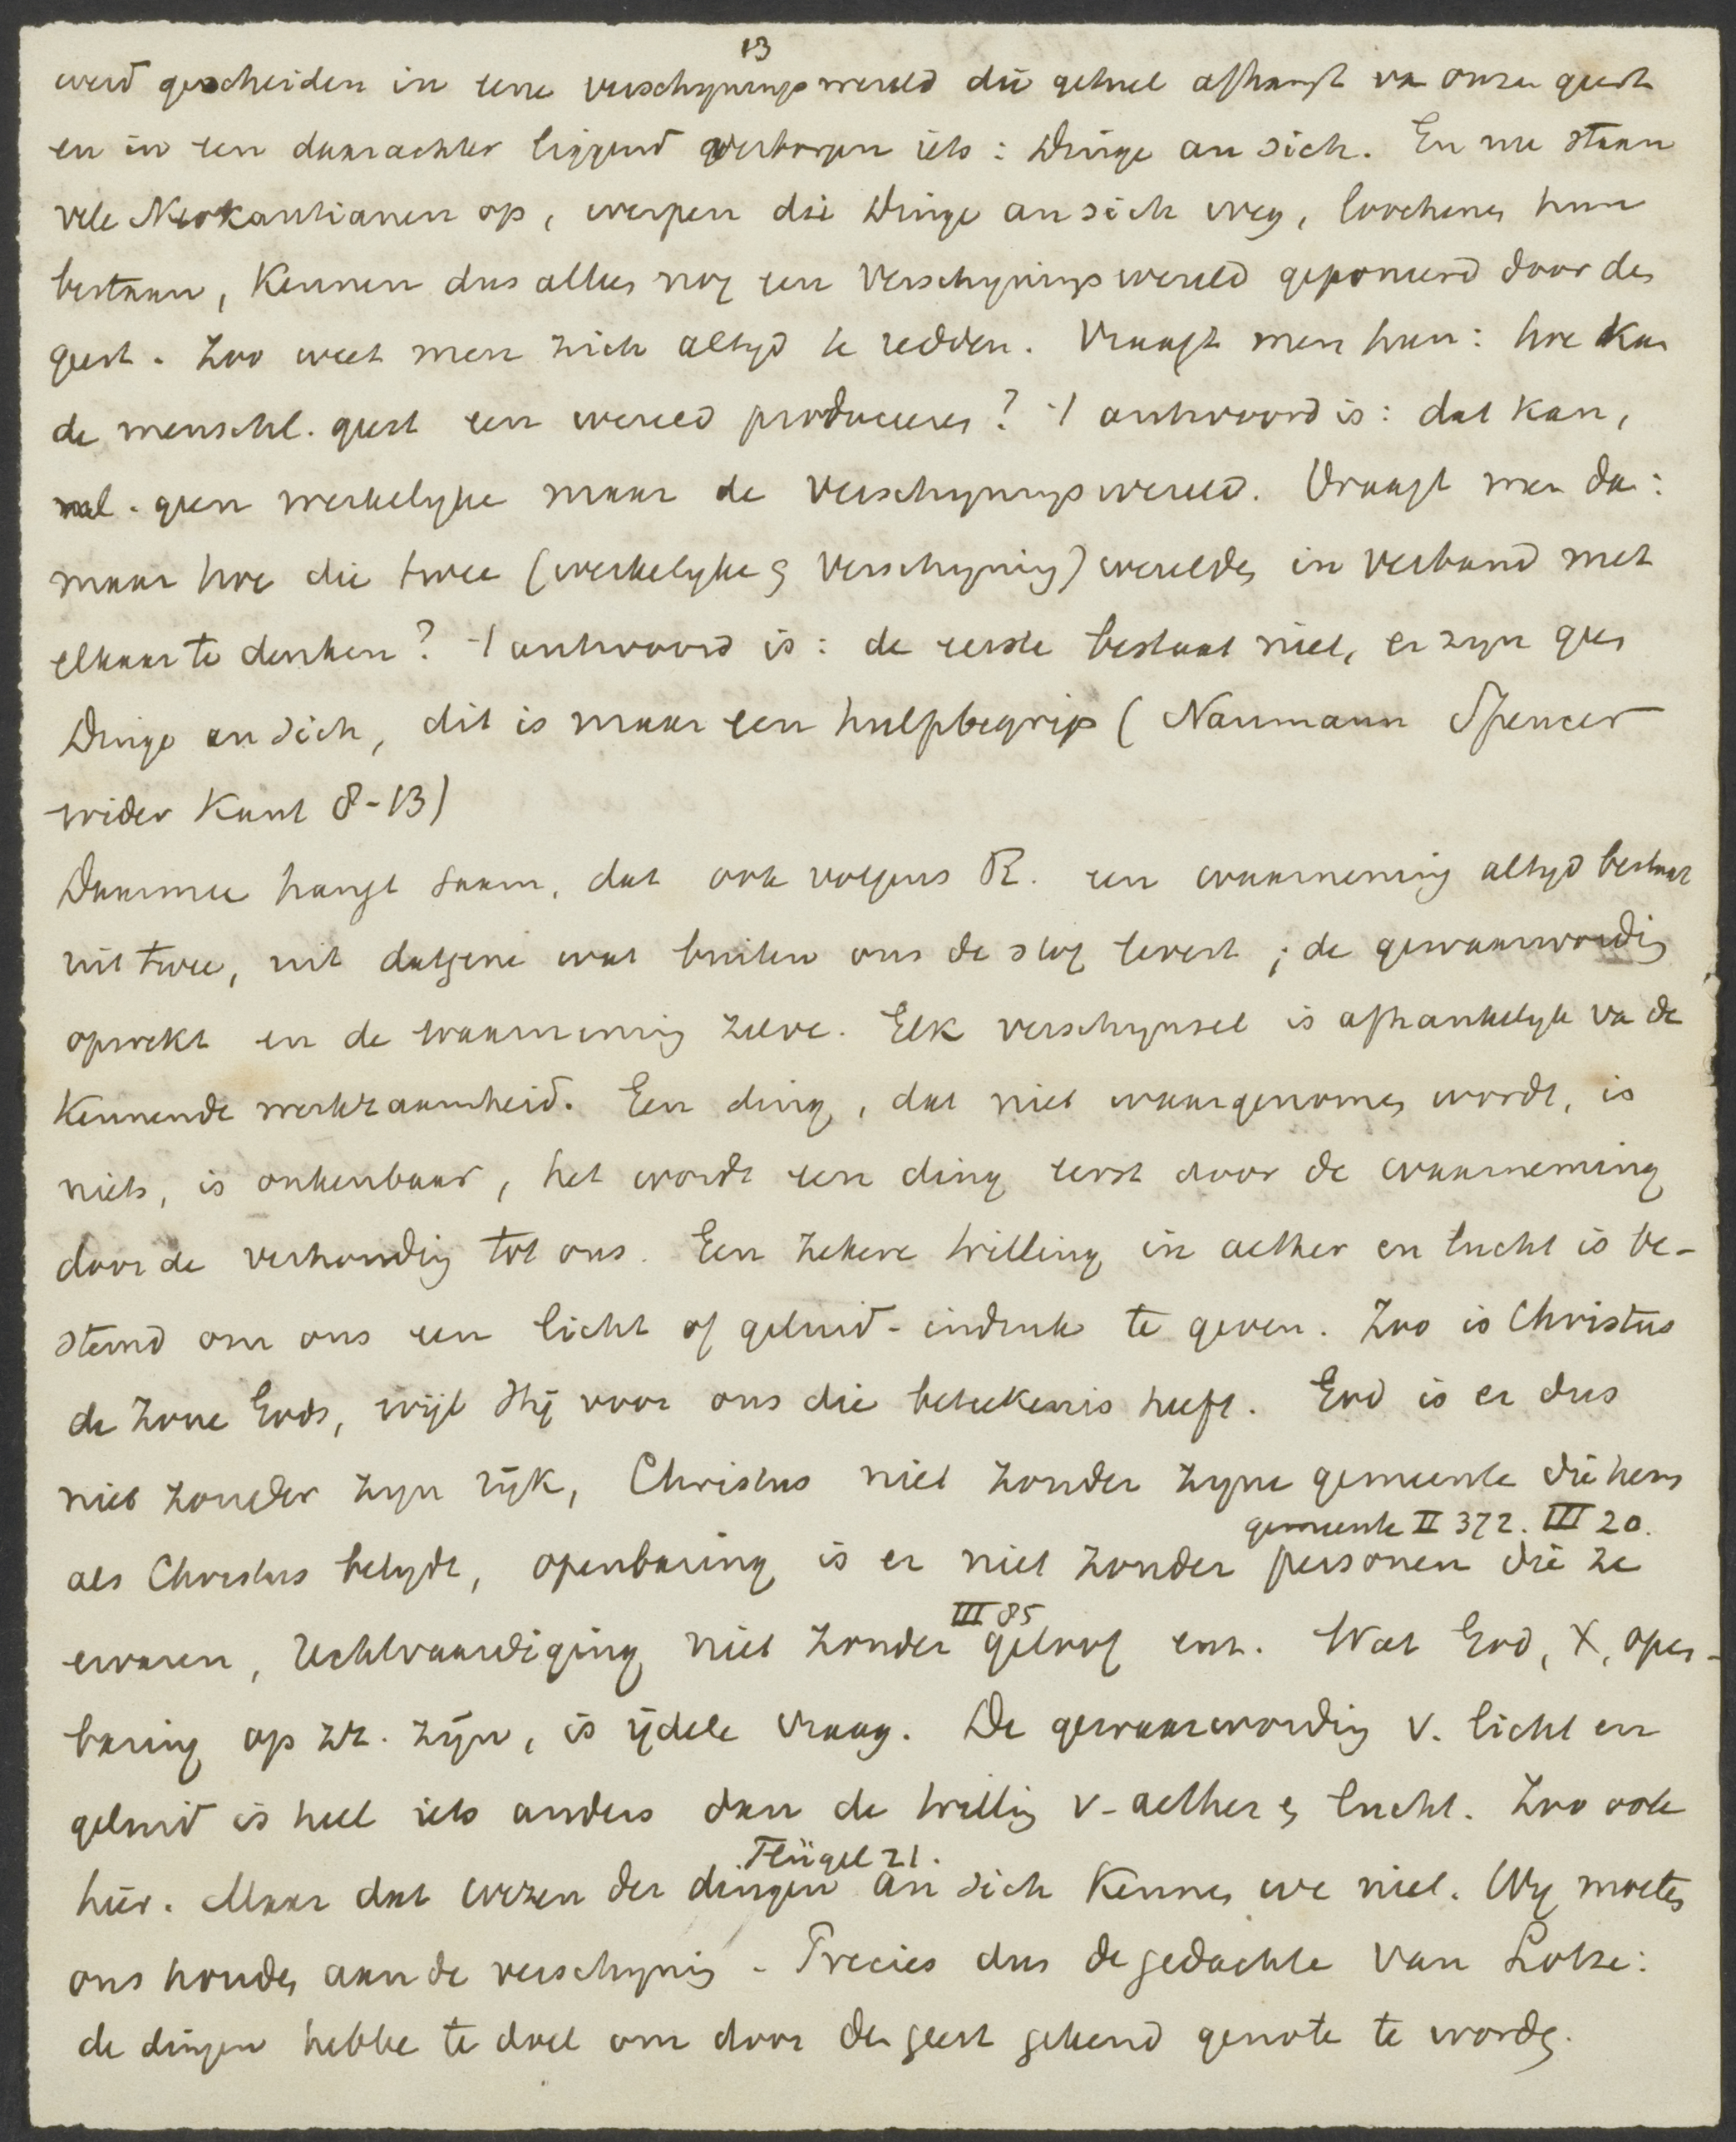 13
werd gescheiden in eene verschijningswereld die geheel afhangt van onzen geest
en in een daarachter liggend verborgen iets: Dinge an sich. En nu staan
vele Neokantianen op, werpen die Dinge an sich weg, loochenen hun
bestaan, kennen dus alleen nog een verschijningswereld geponeerd door den
geest. Zoo weet men zich altijd te redden. Vraagt men hun: hoe kan
de menschl. geest een wereld produceeren? 't antwoord is: dat kan,
nal. geen werkelijke maar de verschijningswereld. Vraagt men dan:
maar hoe die twee (werkelijke en verschijning) werelden in verband met
elkaar te denken? 't antwoord is: de eerste bestaat niet, er zijn geen
Dinge an sich, dit is maar een hulpbegrip (Naumann Spencer
wider Kant 8-13)
Daarmee hangt saam, dat ook volgens R. een waarneming altijd bestaat
uit twee, uit datgene wat buiten ons de stof levert; de gewaarwording
opwekt en de waarneming zelve. Elk verschijnsel is afhankelijk van de
kennende werkzaamheid. Een ding, dat niet waargenomen wordt, is
niets, is onkenbaar, het wordt een ding eerst door de waarneming
door de verhouding tot ons. Een zekere trilling in aether en lucht is be-
stemd om ons een licht of geluid-indruk te geven. Zoo is Christus
de Zone Gods, wijl Hij voor ons die beteekenis heeft. God is er dus
niet zonder zijn rijk, Christus niet zonder zijne gemeente die hem
gemeente II 372. III 20.
als Christus belijdt, openbaring is er niet zonder personen die ze
III 85
ervaren, rechtvaardiging niet zonder geloof enz. Wat God, X, open-
baring op zz. zijn, is ijdele vraag. De gewaarwording v. licht en
geluid is heel iets anders dan de trilling v. aether en lucht. Zoo ook
Flügel 21.
hier. Maar dat wezen der dingen an sich kennen we niet. Wij moeten
ons houden aan de verschijning. Precies dus de gedachte van Lotze:
de dingen hebbe te doel om door den geest gekend genote te worden.